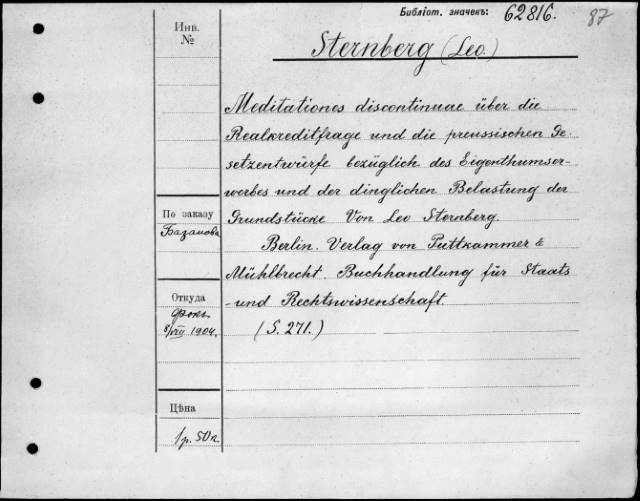 Библіот. значекъ: 62816. 87
Инв.
№
Sternberg (Leo.)
Meditationes discontinuae über die
Realkreditfrage und die preussischen Ge-
setzentwürfe bezüglich des Eigenthumser-
werbes und der dinglichen Belastung der
Grundstücke Von Leo Sternberg.
Berlin. Verlag von Puttkammer &
Mühlbrecht. Buchhandlung für Staats
-und Rechtswissenschaft.
(S. 271.)
По заказу
Базанова
Откуда
8/VIII 1904.
Цѣна
1 р. 50 к.